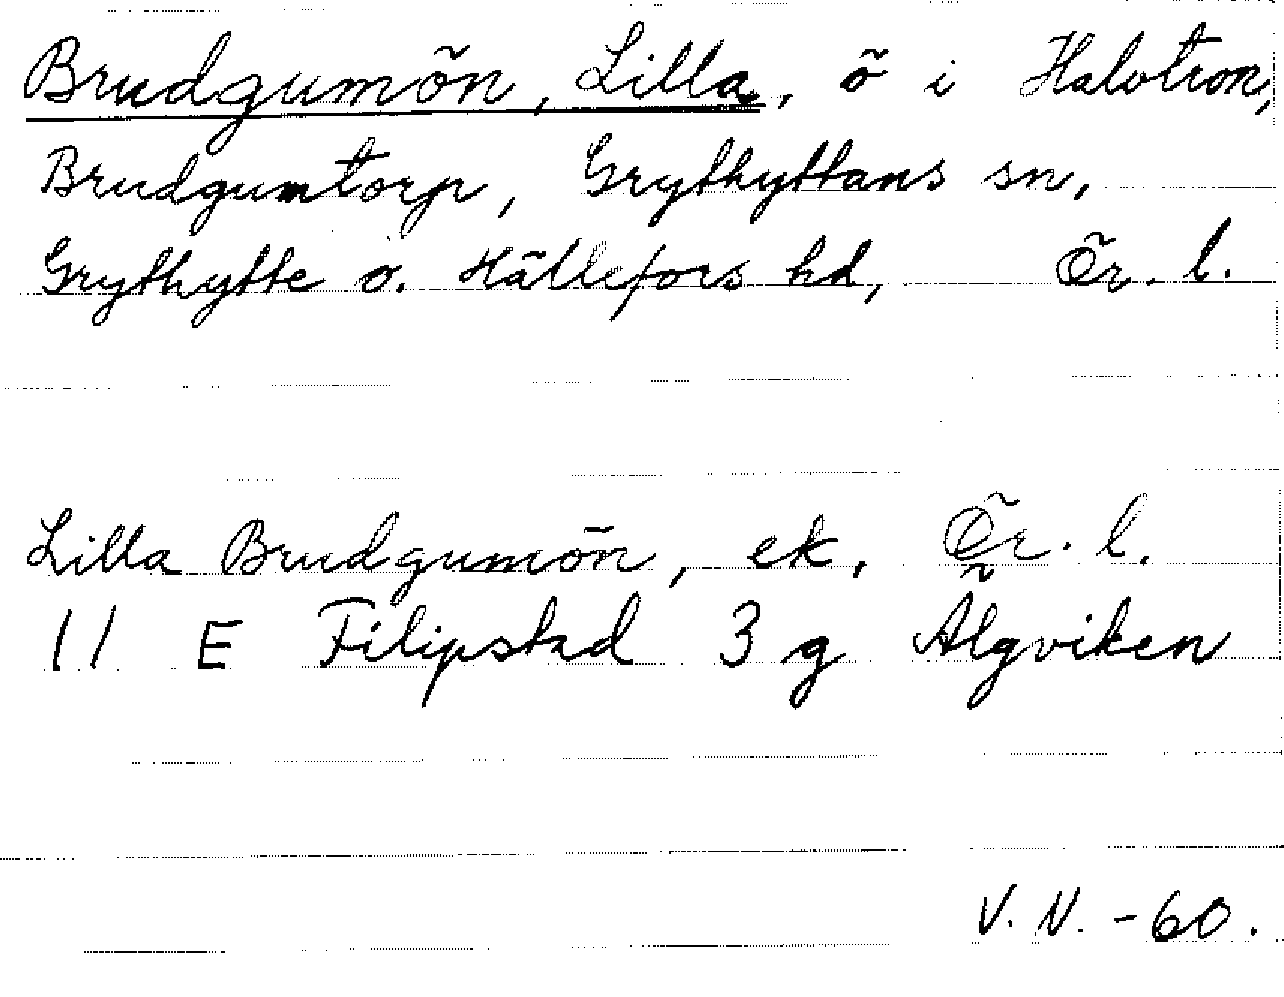 Brudgumön, Lilla, ö i Halvtron,
Brudgumtorp, Grythyttans sn,
Grythytte o. Hällefors hd, Ör. l.
Lilla Brudgumön, ek, Ör. l.
11 E Filipstad 3 g Älgviken
V. N. -60.